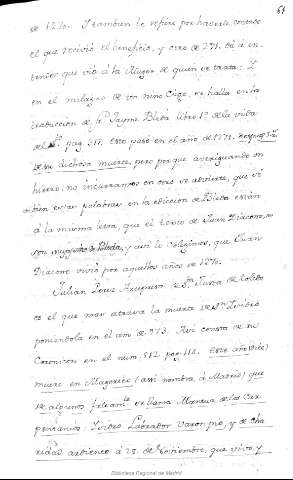 61
de 1270. Y tambien le refiere por haverle contado
el que recivió el beneficio, y otro de 271. dá á en-
tender que vió á la Muger de quien se trata; Y
en el milagro de un niño Ciego, se halla en la
traduccion de Fr. Jayme Bleda libro 1º de la vida
del Sto. pag. 311. Esto pasó en el año de 1271. despues
de su dichosa muerte, pero por que averiguando un
hierro, no incurramos en otro se advierte, que si
bien estas palabras en la edicion de Bleda están
á la misma letra, que el texto de Juan Diacono, no
son suyas de Bleda, y asi lo Colegimos, que Juan
Diacono vivió por aquellos años de 1270.
Julian Perez Arcipreste de Sta. Justa de Toledo
es el que mas atrasa la muerte de Sn. Ysidro
poniendola en el año de 973. Asi consta de su
Coronicon en el num. 512. pag. 112. Este año (dice)
muere en Magerito (asi nombra á Madrid) que
de algunos falsamte. se llama Mantua de los Car-
pentanios Ysidro Labrador varon pio, y de cha-
ridad ardiente á 28. de Noviembre, que vivió, y
Biblioteca Regional de Madrid